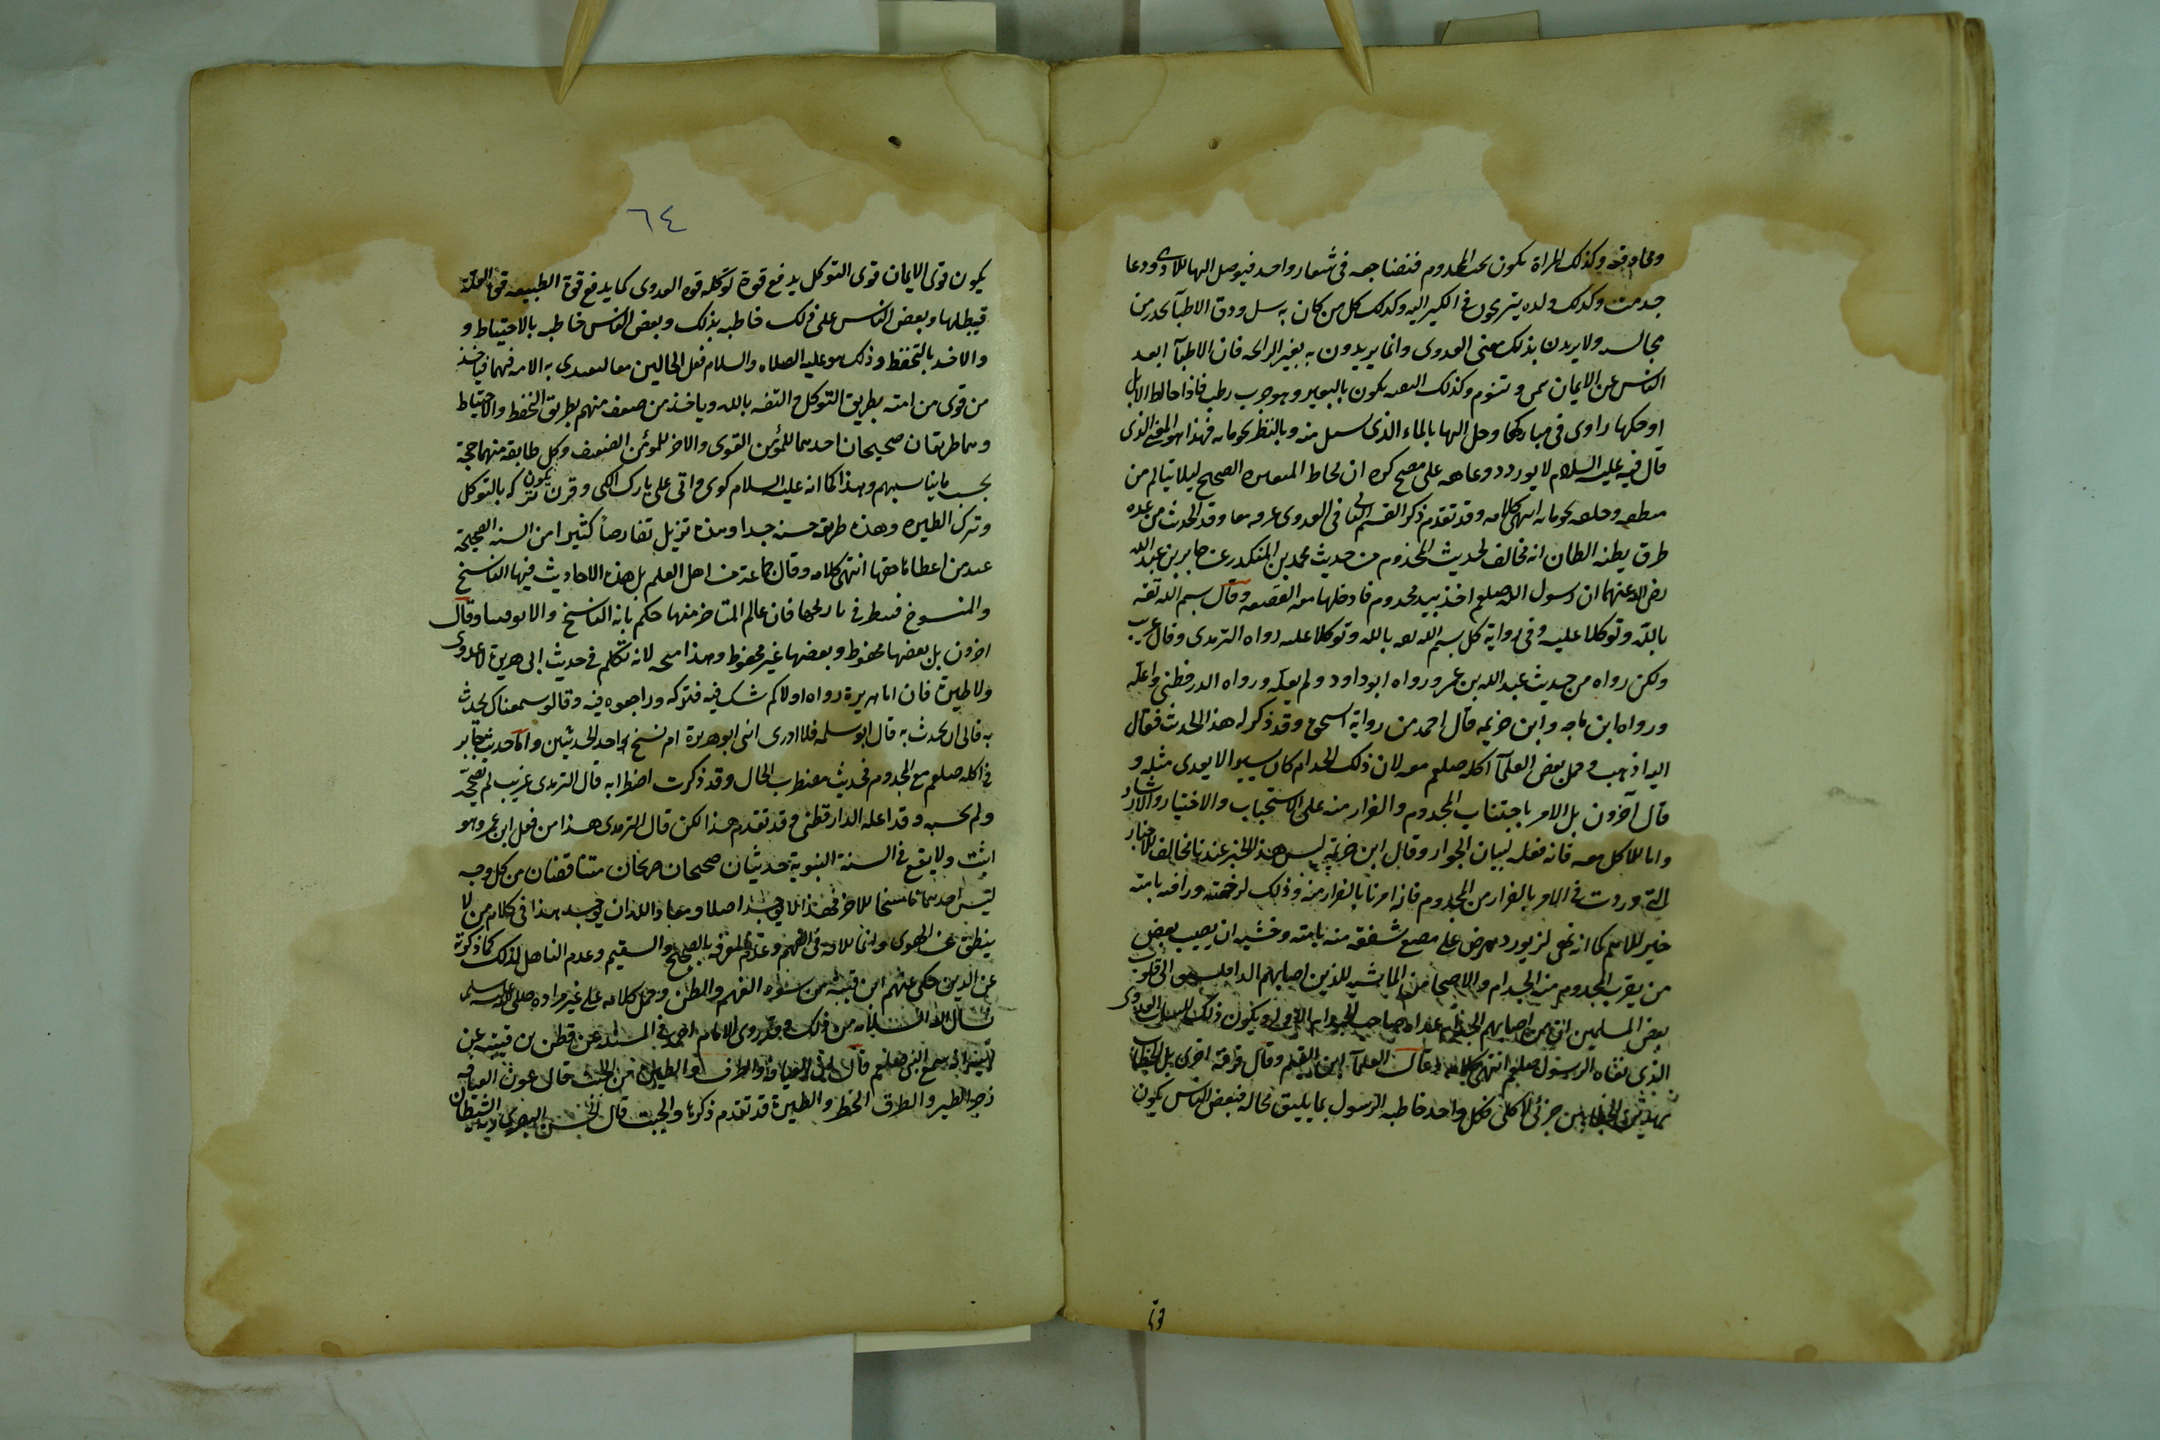 ومحادثته وكذلك المراة تكون تحت المجذوم فتضاجعه فى شعار واحد فيوصل اليها الاذى وربما
جذمت وكذلك ولده ينزعون فى الكبر اليه وكذلك كل من كان به سل ودق والاطبا تحذر من
مجالسه ولا يريدون بذلك معنى العدوى وانما يريدون به تغير الرائحه فان الاطبآ ابعد
الناس عن الايمان بيمن وشوم وكذلك النقبه تكون بالبعير وهو جرب رطب فاذا خالط الابل
او حكها واوى فى مباركها وصل اليها بالماء الذى يسيل منه وبالنظر نحو ما به فهذا هو المعنى الذى
قال فيه عليه السلام لا يورد ذو عاهه على مصح كره ان يخالط المعيوه الصحيح ليلا يناله من
نطفه وحكه نحو ما به انتهى كلامه وقد تقدم ذكر القسم الثانى فى العدوى
طرق يظنه الظان انه مخالف لحديث المجذوم من حديث محمد بن المنكدر عن جابر بن عبد الله
رضى الله عنهما ان رسول الله صلعم اخذ بيد مجذوم فادخلها معه القصعه وقال بسم الله ثقة
بالله وتوكلا عليه وفى رواية كل بسم الله ثقه بالله وتوكلا عليه رواه الترمذى وقال غريب
ولكن رواه من حديث عبد الله بن عمر ورواه ابو داود ولم يعله ورواه الدارقطنى واعله
ورواه ابن ماجه وابن خزيمه قال احمد من رواية اسحق وقد ذكر له هذا الحديث فقال
اليه اذهب وحمل بعض العلمآ اكله صلعم معه لان ذلك الجذام كان يسيرا لا يعدى مثله و
قال آخرون بل الامر باجتناب المجذوم والفرار منه على الاستحباب والاختيار والارشاد
واما الاكل معه فانه فعله لبيان الجواز وقال ابن خزيمة ليس هذا الخبر عندنا مخالف للاخبار
التى وردت فى الامر بالفرار من المجذوم فانه امرنا بالفرار منه وذلك لرحمته ورافه بامته
خير للامم كما انه نهى ان يورد ممرض على مصح شفقه منه بامته وخشيه ان يصيب بعض
من يقرب المجذوم منه الجذام والاصحا من الماشيه الذين اصابهم الدا فيسبق الى قلوب
بعض المسلمين ان من اصابهم الجذام عداه صاحب الجذام الاول ويكون ذلك العدوى
الذى نفاه الرسول صلعم انتهى كلامه وقال العلآمه ابن القيم وقال فرقة اخرى بل الخطاب
بهذين الخطابين جزئى لا كلى فكل واحد خاطبه الرسول بما يليق بحاله فبعض الناس يكون
وى
٦٤
يكون قوى الايمان قوى التوكل يدفع قوة توكله قوة العدوى كما يدفع قوة الطبيعه قوة العله
فيبطلها وبعض الناس على ذلك خاطبه بذلك وبعض الناس خاطبه بالاحتياط و
والاخذ بالتحفظ وذلك هو عليه الصلاه والسلام فعل الحالين معا لتقتدى به الامه فيهما فياخذ
من قوى من امته بطريق التوكل والثقه بالله وياخذ من ضعف منهم بطريق التحفظ والاحتياط
وهما طريقان صحيحان احدهما للمؤمن القوى والاخر للمؤمن الضعيف وكل طايفه منهما حجة
بحسب ما يناسبهم وهذا كما انه عليه السلام كوى واثنى على تارك الكى وقرن تركه بالتوكل
وترك الطيره وهذه طريقه حسنه جدا وهذه تزيل تعارضا كثيرا من السنه الصحيحة
عند من اعطاها حقها انتهى كلامه وقال جماعة من اهل العلم بل هذه الاحاديث فيها الناسخ
والمنسوخ فينظر فى تاريخها فان علم المتاخر منها حكم بانه الناسخ والا توقفنا وقال
اخرون بل بعضها محفوظ وبعضها غير محفوظ وهذا لانه تكلم فى حديث ابى هريرة لا عدوى
ولا طيرة فان ابا هريرة رواه اولا ثم شك فيه فتركه وراجعوه فيه وقالوا سمعناك تحدث
به فابى ان يحدث به قال ابو سلمه فلا ادرى انسى ابو هريرة ام نسخ احد الحديثين واما حديث جابر
فى اكله صلعم مع المجذوم فحديث مضطرب الحال وقد ذكرت اضطرابه قال الترمذى غريب لم يصححه
ولم يحسنه وقد اعله الدارقطنى وقد تقدم هذا لكن قال الترمذى هذا من فعل ابن عمر وهو
اثبت ولا يقع فى السنة النبوية حديثان صحيحان صريحان متناقضان من كل وجه
ليس احدهما ناسخا للاخر فهذا لا يوجد اصلا ومعاذ الله ان يوجد هذا فى كلام من لا
ينطق عن الهوى وانما الافه فى الفهم وعدم المعرفه بالصحيح والسقيم وعدم التاهل لذلك كما ذكرته
عن الذين حكى عنهم ابن قتيبة من سوء الفهم والظن وحمل كلامه على غير مراده صلى الله عليه وسلم
نسال الله السلامه من ذلك وقد روى الامام احمد فى المسند عن قطن بن قبيصه عن
ابيه انه سمع النبى صلعم قال ان العيافه والطرق والطيرة من الجبت قال عوف العيافه
زجر الطير والطرق الخط والطيرة قد تقدم ذكرها والجبت قال الحسن البصرى رنة الشيطان